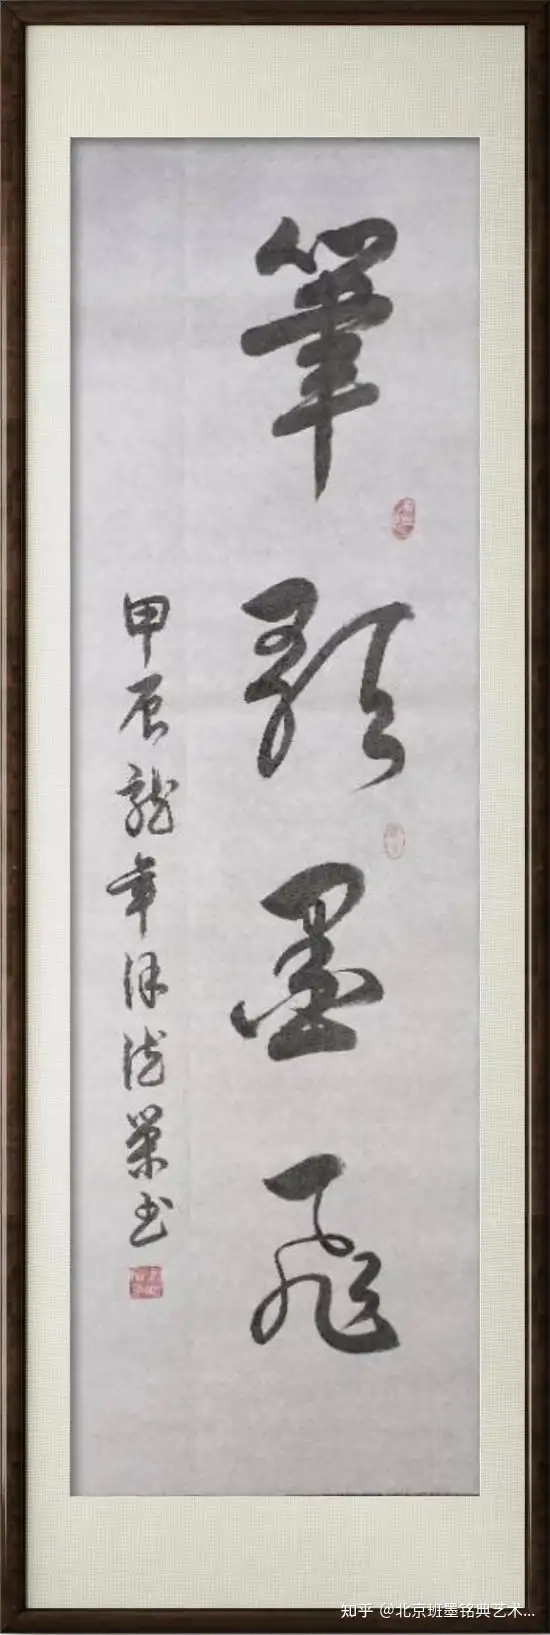 筆歌墨飛
甲辰龍年徐德榮书
知乎 @北京班墨铭典艺术...